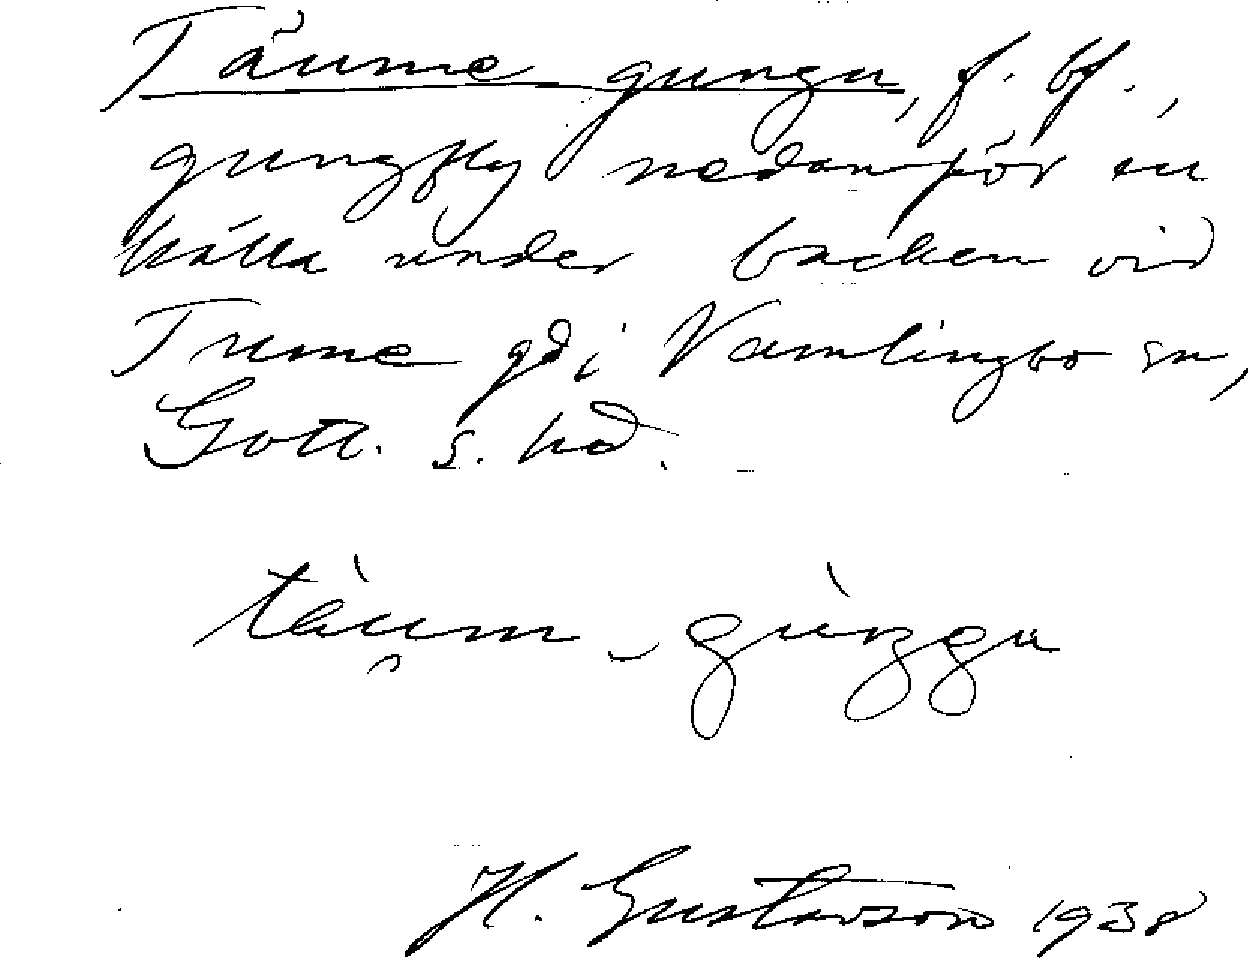 Täume gungu, f. bf.,
gungfly nedanför en
källa under backen vid
Tume gd i Vamlingbo sn,
Gotl. s. hd.
täum - gùnggu
H. Gustavson 1938